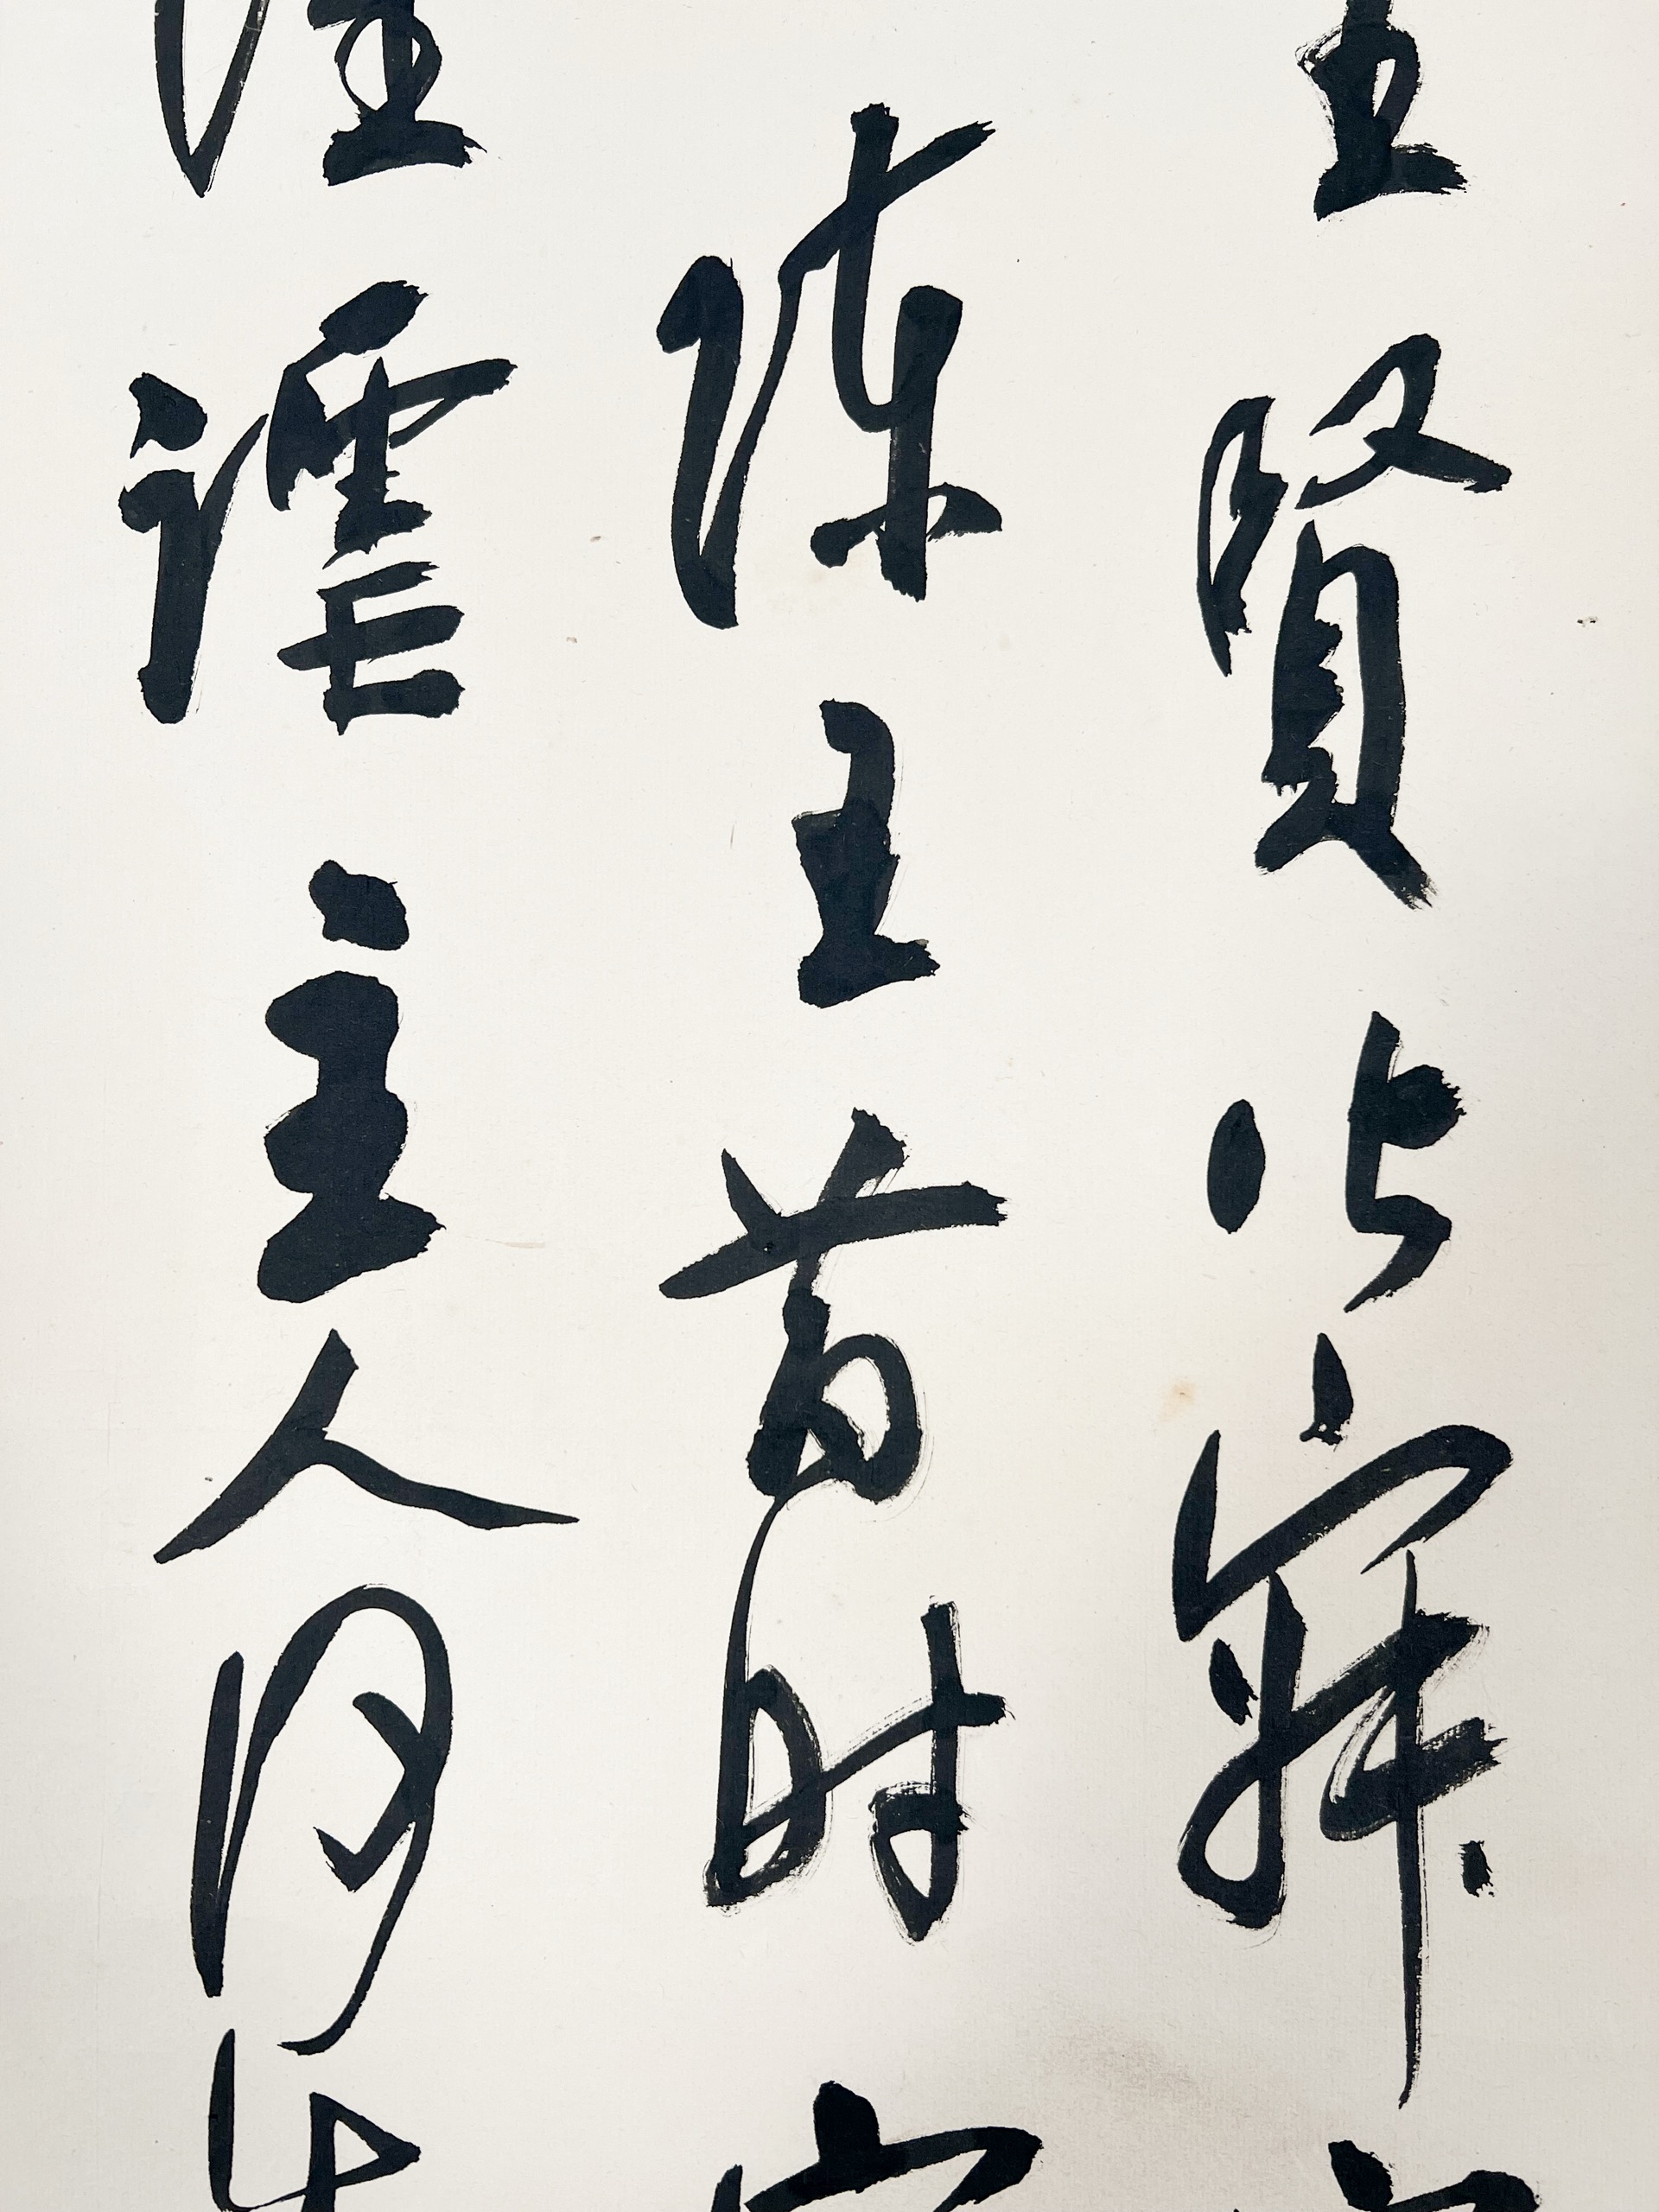 賢皆寂
陳王昔時
謔主人何